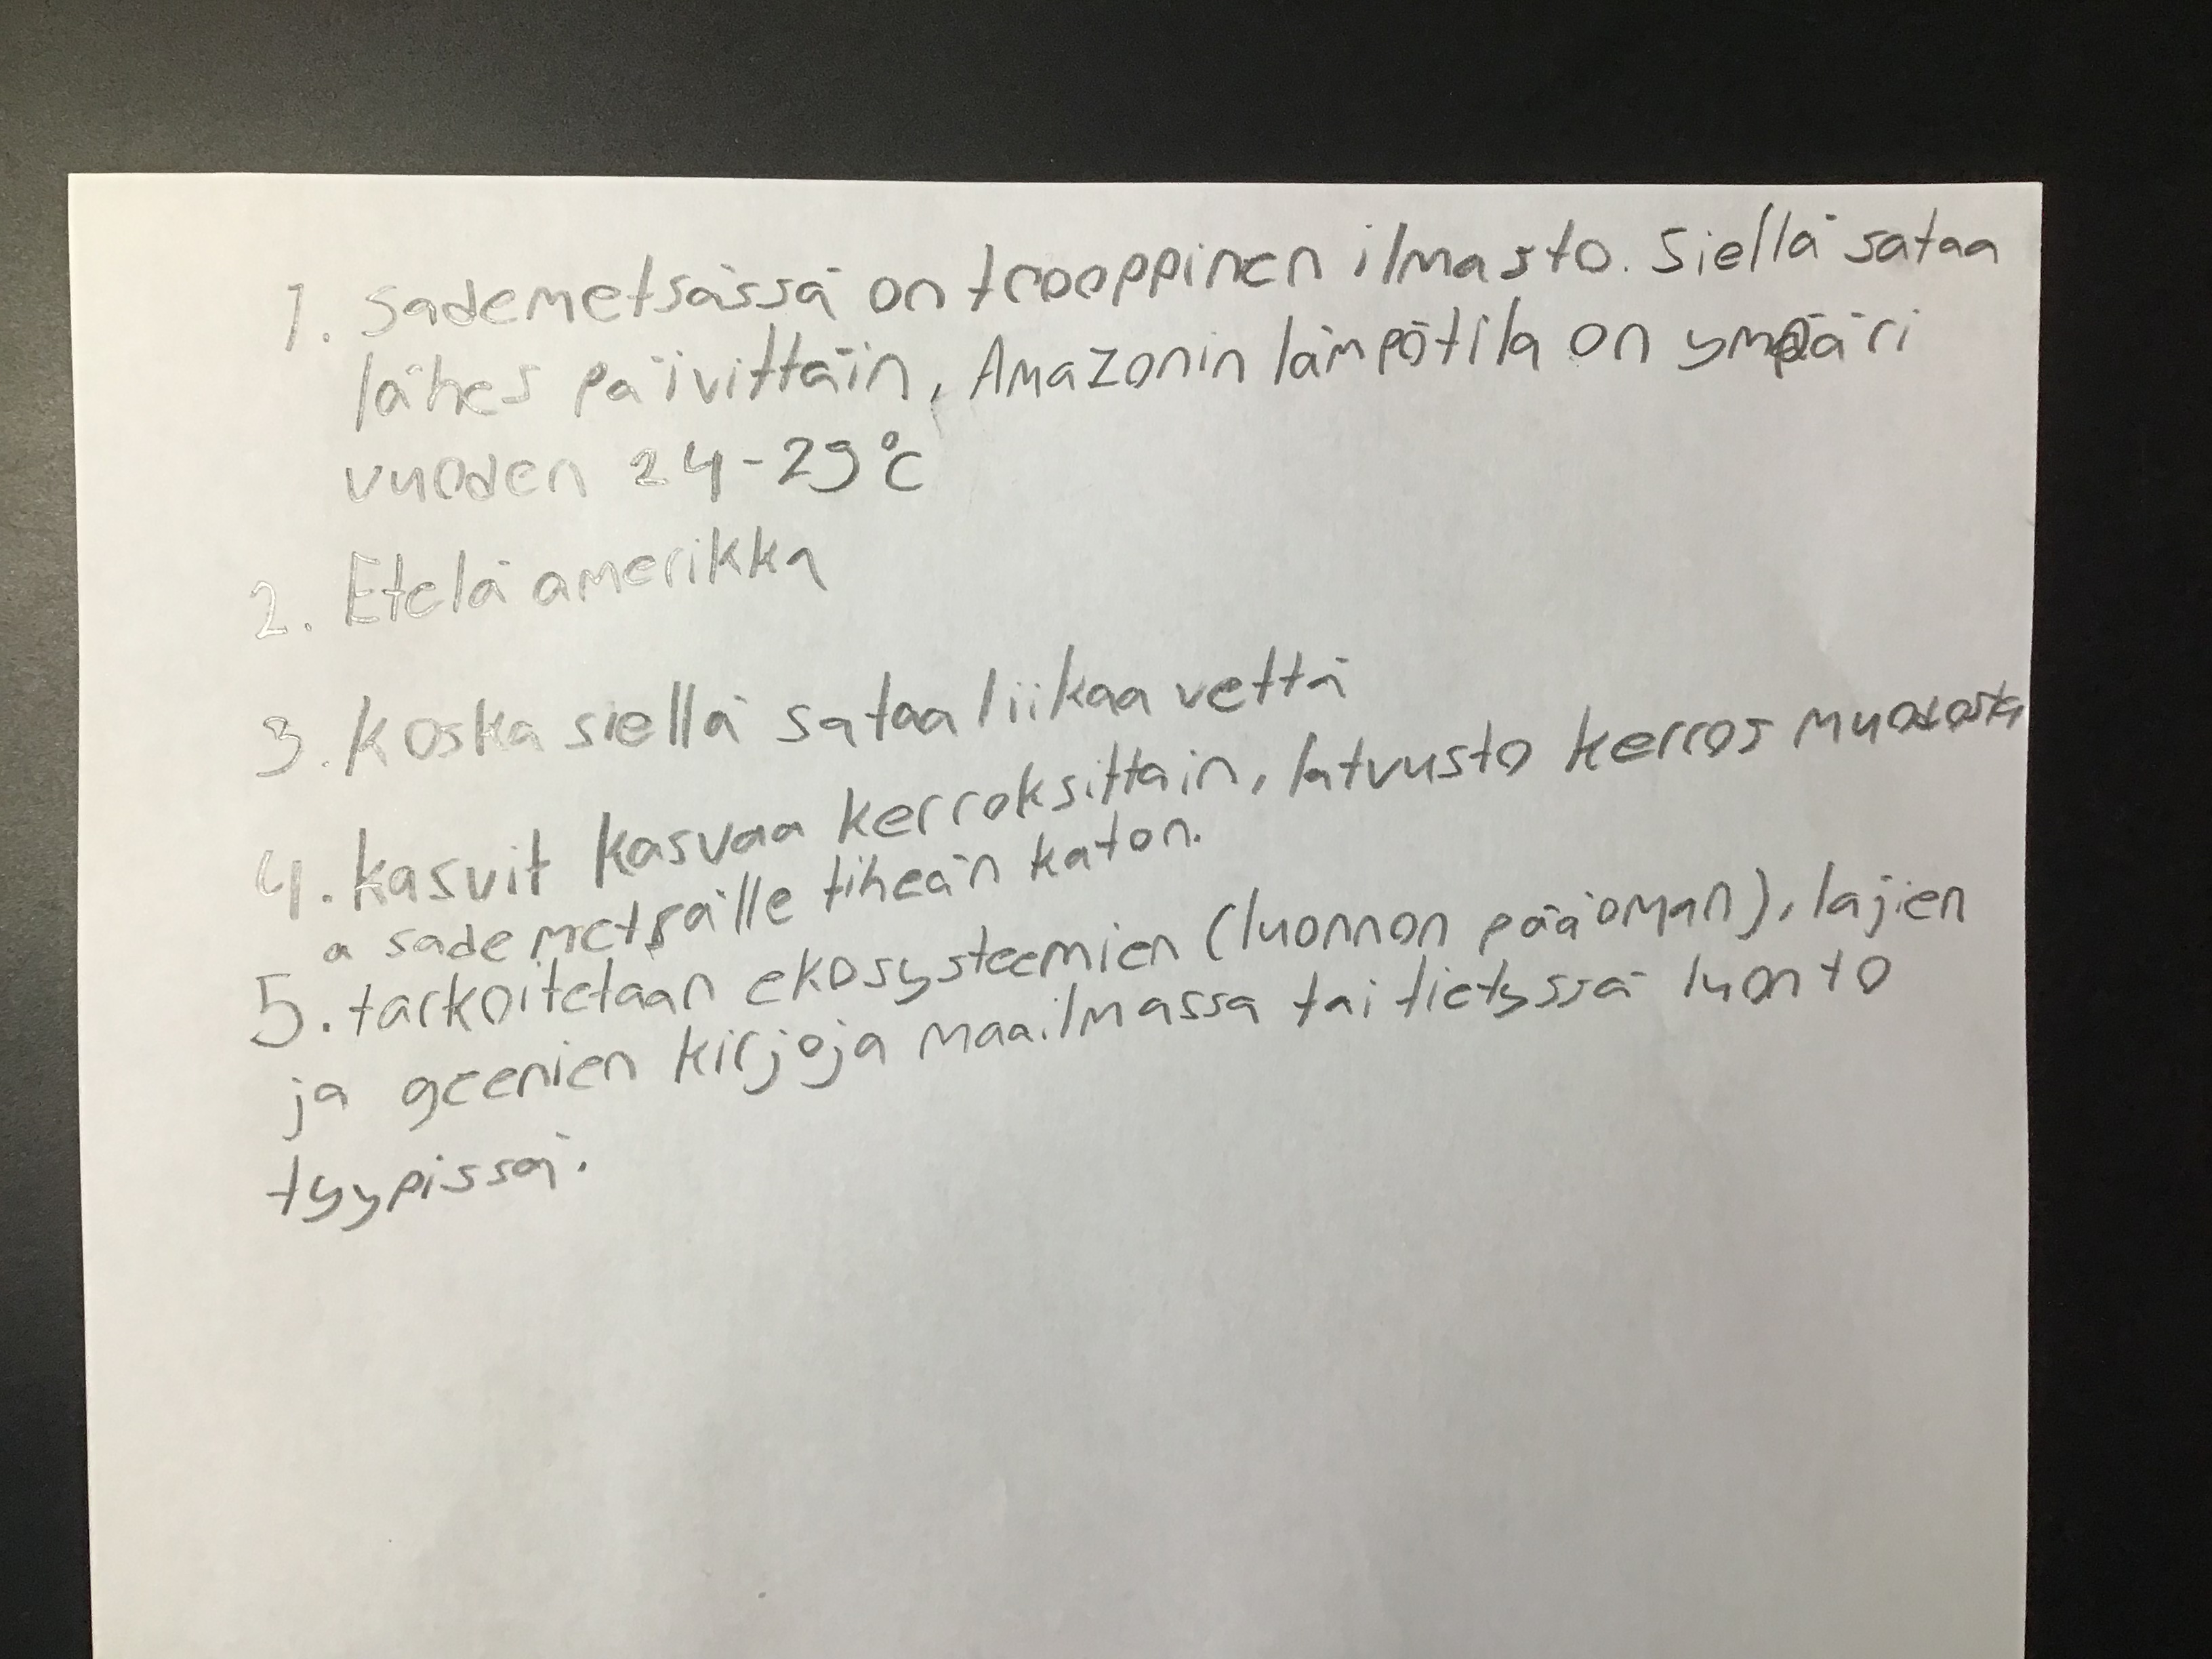 1. Sademetsässä on trooppinen ilmasto. Siellä sataa
lähes päivittäin, Amazonin lämpötila on ympäri
vuoden 24-29°C
2. Etelä amerikka
3. Koska siellä sataa liikaa vettä
4. kasvit kasvaa kerroksittain, latvusto kerros
a sademetsälle tiheän katon.
5. tarkoitetaan ekosysteemien (luonnon pääoman), lajien
ja geenien kirjoja maailmassa tai tietyssä luonto
tyypissä.